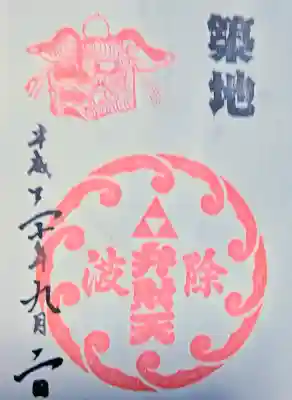 築地
波除
弁財天
平成三十年九月二日